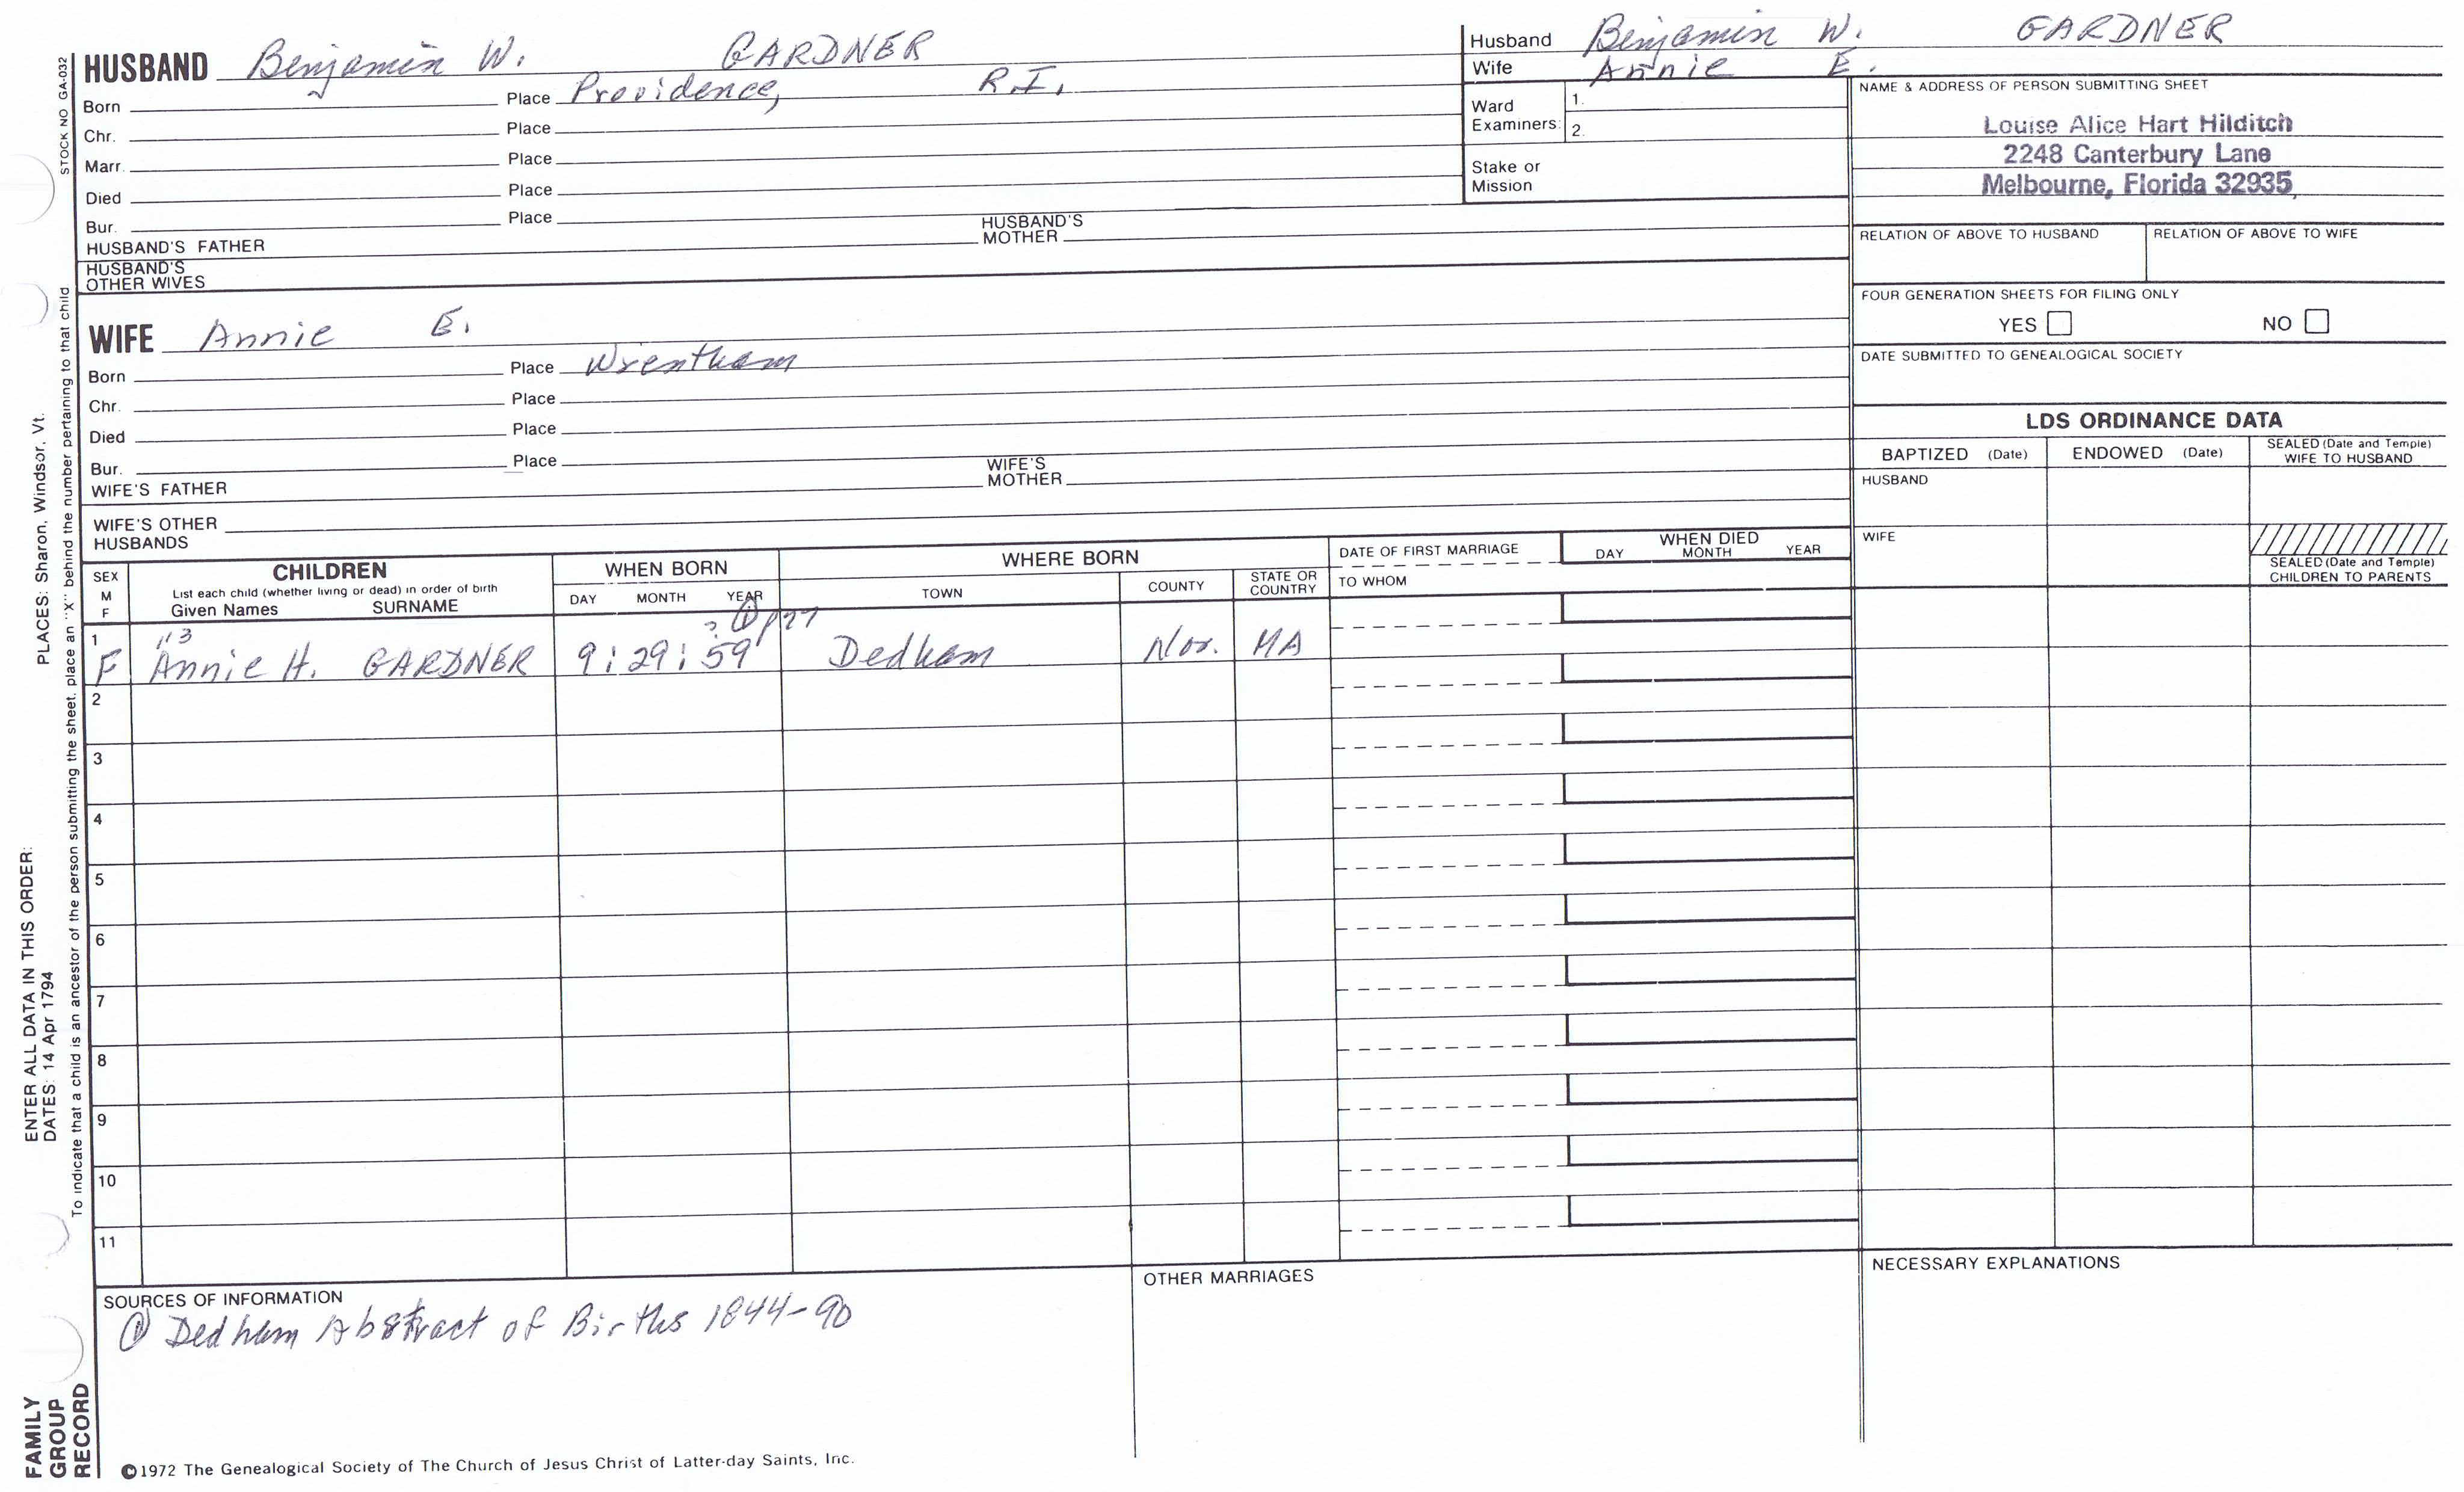 HUSBAND Benjamin W. GARDNER
Born Place Providence, R.I.
Chr. Place
Marr. Place
Died Place
Bur. Place
HUSBAND'S FATHER HUSBAND'S MOTHER
HUSBAND'S OTHER WIVES
WIFE Annie E.
Born Place Wrentham
Chr. Place
Died Place
Bur. Place
WIFE'S FATHER WIFE'S MOTHER
WIFE'S OTHER HUSBANDS
Husband Benjamin W. GARDNER
Wife Annie E.
Ward Examiners: 1.
2.
Stake or Mission
NAME & ADDRESS OF PERSON SUBMITTING SHEET
Louise Alice Hart Hilditch
2248 Canterbury Lane
Melbourne, Florida 32935
RELATION OF ABOVE TO HUSBAND RELATION OF ABOVE TO WIFE
FOUR GENERATION SHEETS FOR FILING ONLY
YES NO
DATE SUBMITTED TO GENEALOGICAL SOCIETY
LDS ORDINANCE DATA
BAPTIZED (Date) ENDOWED (Date) SEALED (Date and Temple) WIFE TO HUSBAND
HUSBAND
WIFE
SEALED (Date and Temple) CHILDREN TO PARENTS
SEX M F
CHILDREN
List each child (whether living or dead) in order of birth
Given Names SURNAME
WHEN BORN
DAY MONTH YEAR
WHERE BORN
TOWN COUNTY STATE OR COUNTRY
DATE OF FIRST MARRIAGE
TO WHOM
WHEN DIED
DAY MONTH YEAR
① p27
1 "3
F Annie H. GARDNER 9:29:59 Dedham Nor. MA
2
3
4
5
6
7
8
9
10
11
SOURCES OF INFORMATION
① Dedham Abstract of Births 1844-90
OTHER MARRIAGES
NECESSARY EXPLANATIONS
©1972 The Genealogical Society of The Church of Jesus Christ of Latter-day Saints, Inc.
STOCK NO GA-032
To indicate that a child is an ancestor of the person submitting the sheet, place an "X" behind the number pertaining to that child
ENTER ALL DATA IN THIS ORDER:
DATES: 14 Apr 1794
PLACES: Sharon, Windsor, Vt.
FAMILY
GROUP
RECORD